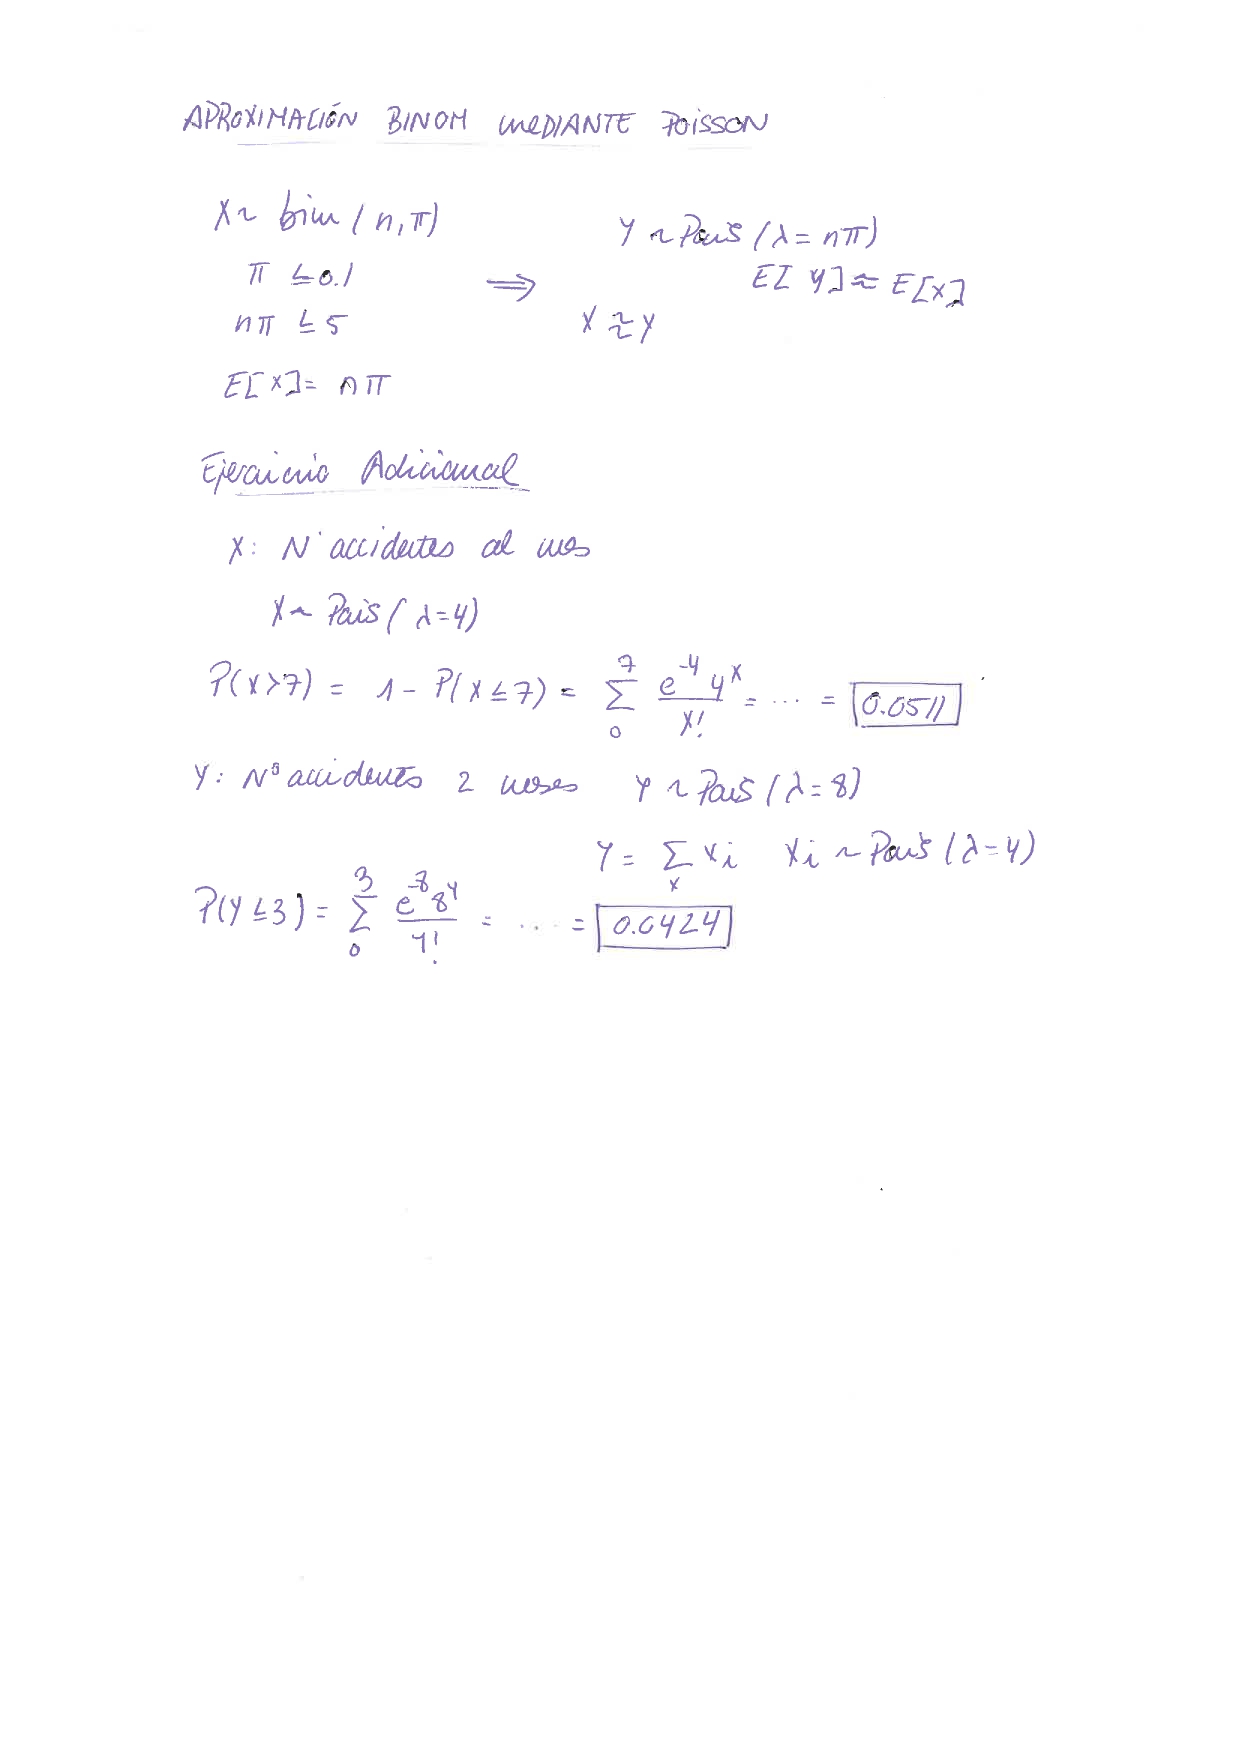 APROXIMACIÓN BINOM MEDIANTE POISSON
X ~ bin (n, π)
Y ~ Pois (λ = nπ)
π ≤ 0.1 ⇒ E[Y] ≈ E[X]
nπ ≤ 5
X ≈ Y
E[X] = nπ
Ejercicio Adicional
X: Nº accidentes al mes
X ~ Pois (λ=4)
P(X>7) = 1 - P(X≤7) = ∑ 0 7 e^-4 4^x / x! = ... = 0.0511
Y: Nº accidentes 2 meses Y ~ Pois (λ=8)
Y = ∑ x Xi Xi ~ Pois (λ=4)
P(Y≤3) = ∑ 0 3 e^-8 8^Y / Y! = ... = 0.0424